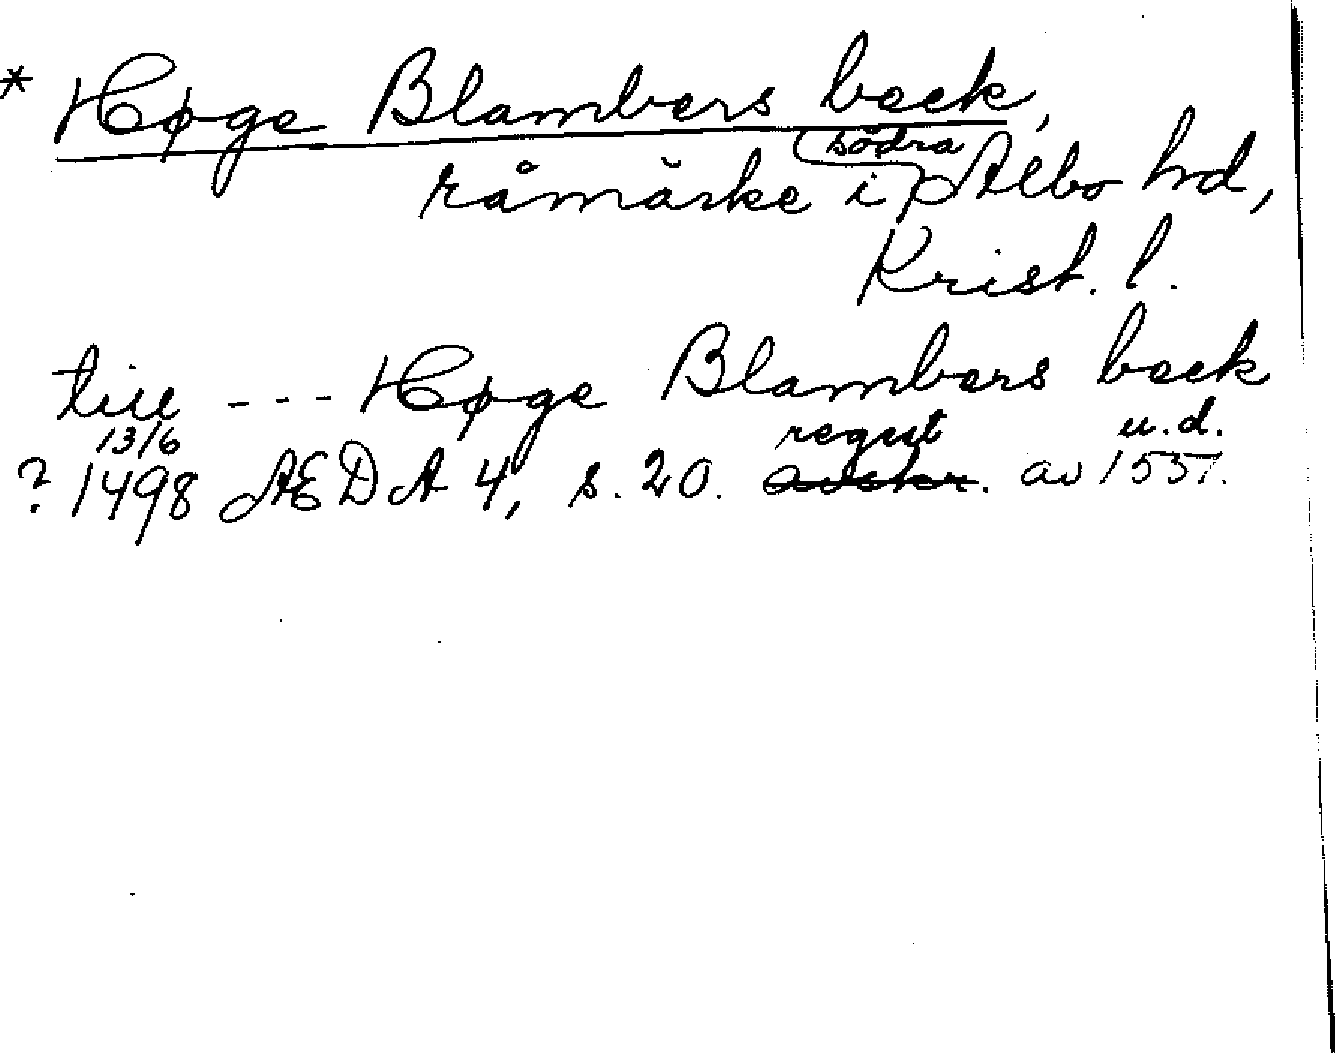 * Høge Blambers beck,
råmärke i södra Albo hd,
Krist. l.
till --- Høge Blambers beck
13/6 regest u.d.
? 1498 ÆDA 4, s. 20. avskr. av 1557.